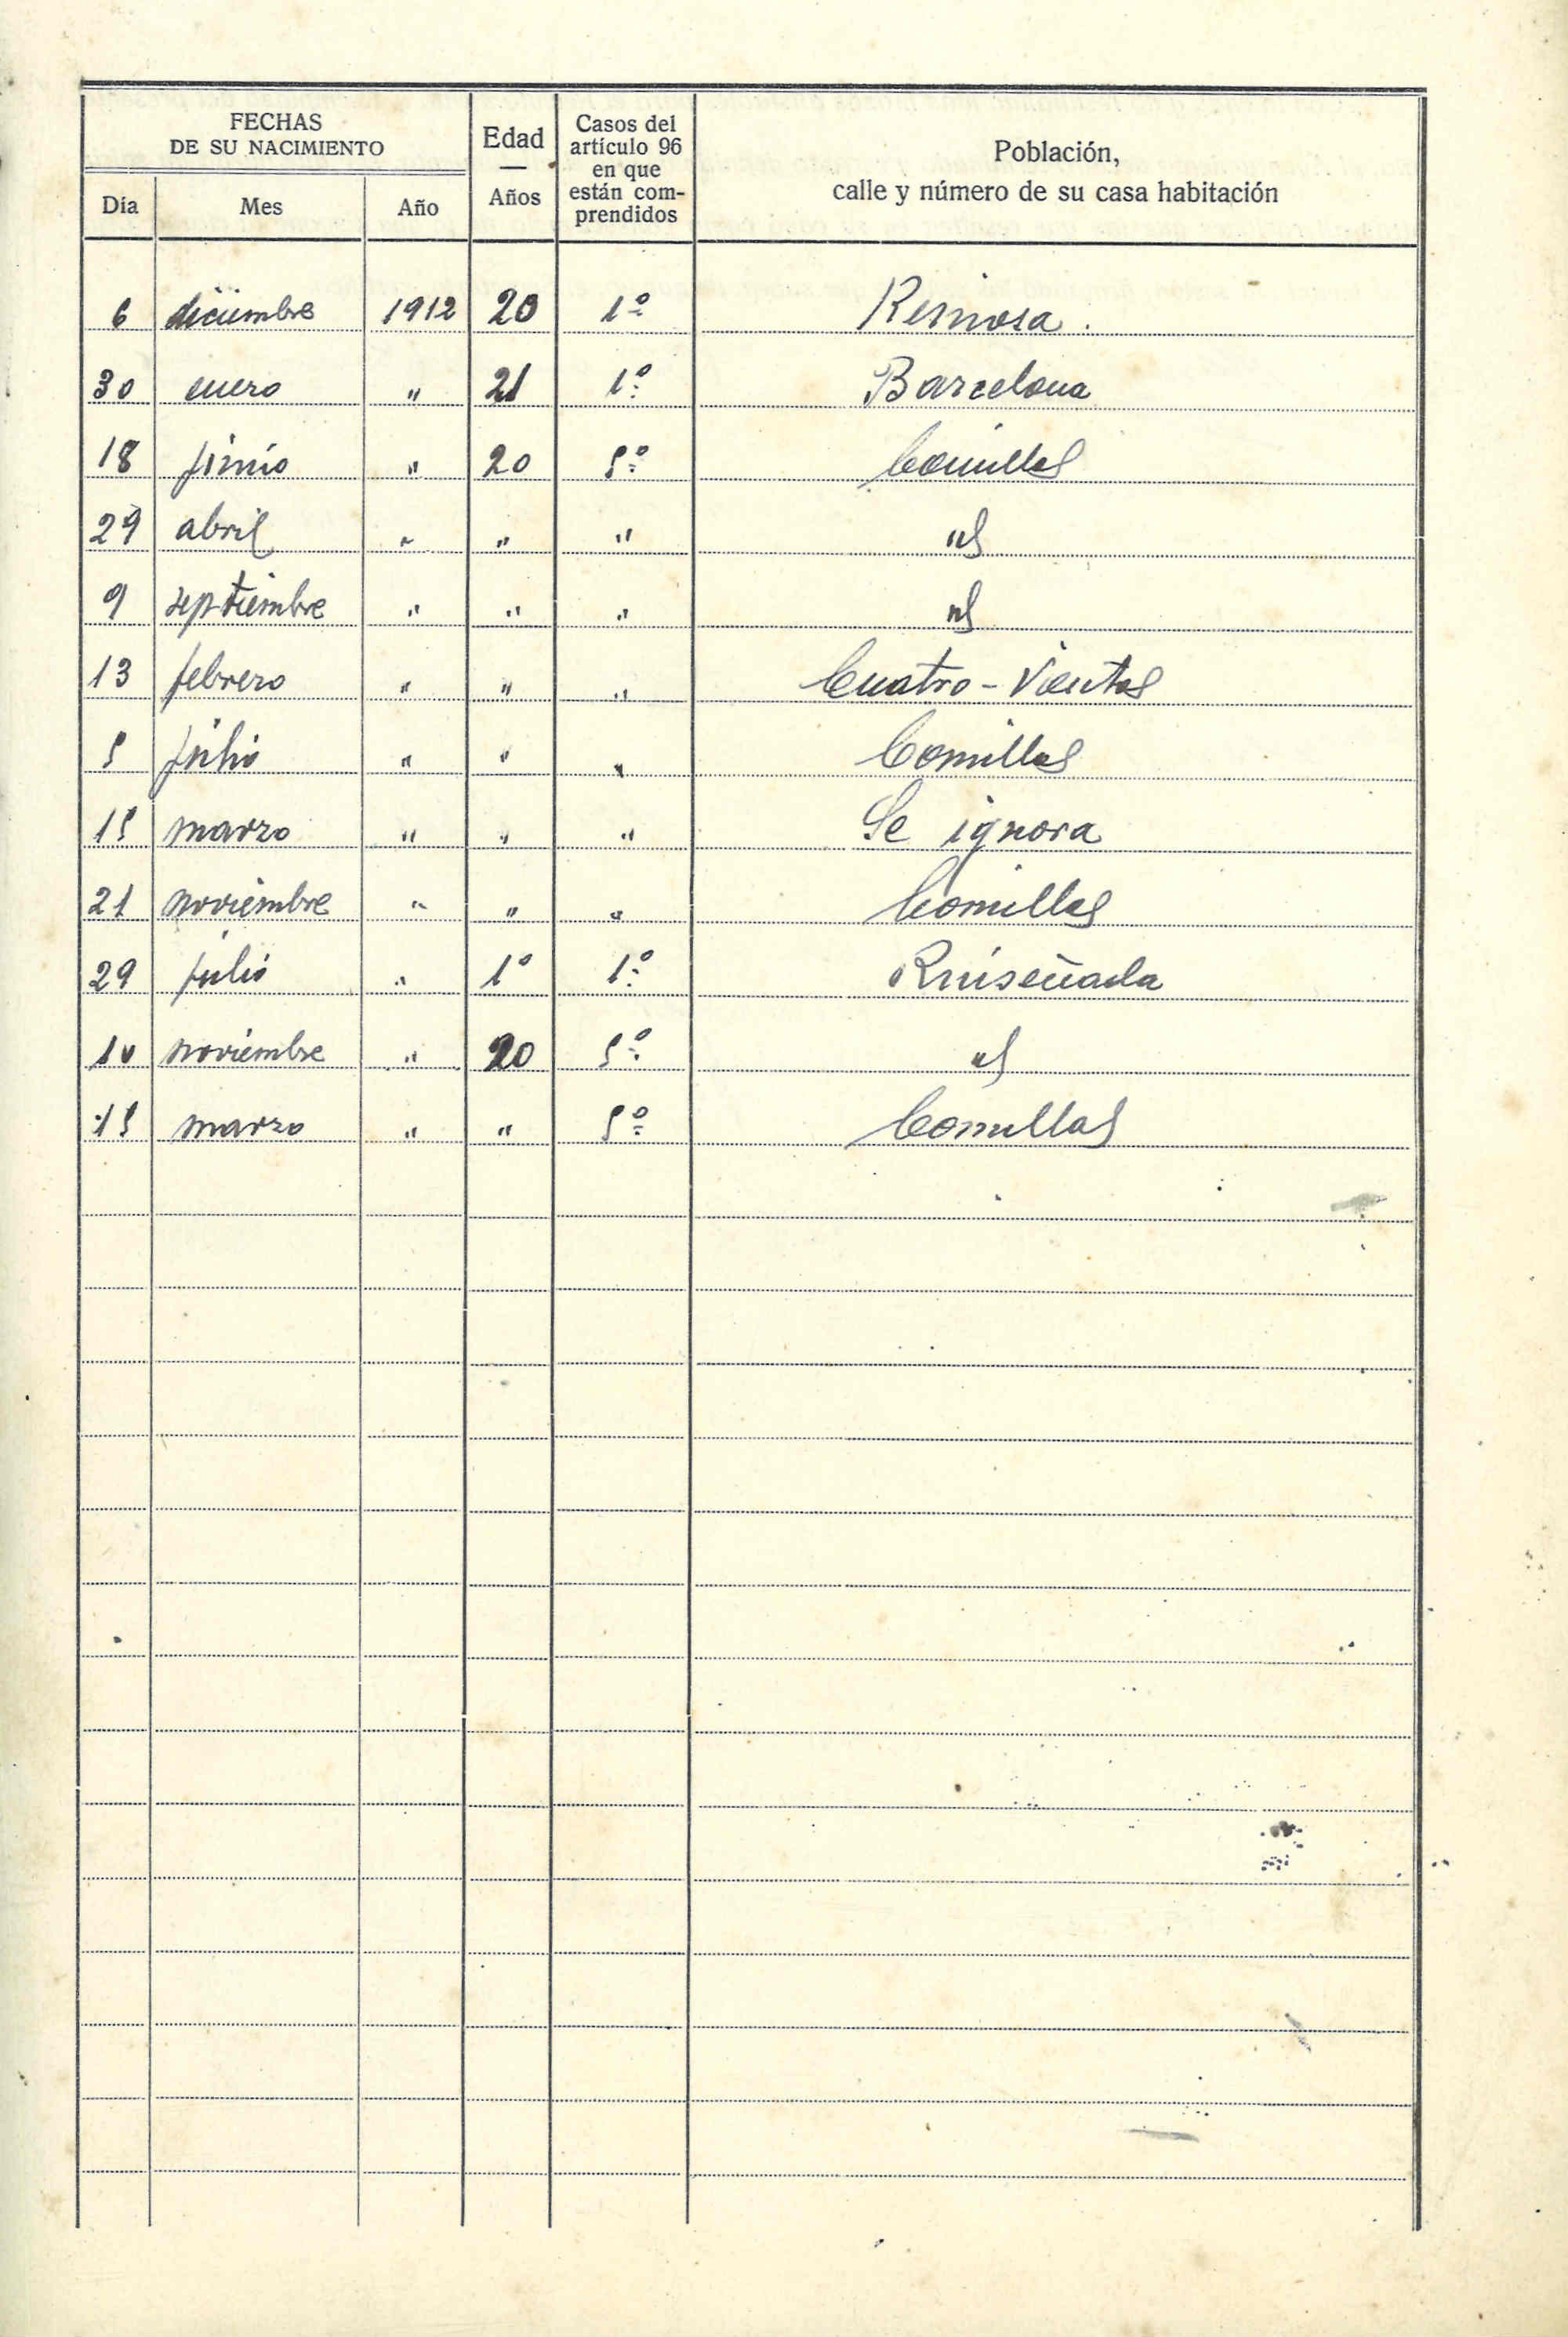 FECHAS
DE SU NACIMIENTO
Edad
—
Años
Casos del
artículo 96
en que
están com-
prendidos
Población,
calle y número de su casa habitación
Día Mes Año
6 diciembre 1912 20 1º Reinosa.
30 enero " 21 1º Barcelona
18 junio " 20 5º Comillas
29 abril " " " id
9 septiembre " " " id
13 febrero " " " Cuatro-Vientos
5 julio " " " Comillas
15 marzo " " " Se ignora
21 noviembre " " " Comillas
29 julio " 1º 1º Ruiseñada
10 noviembre " 20 5º id
15 marzo " " 5º Comillas